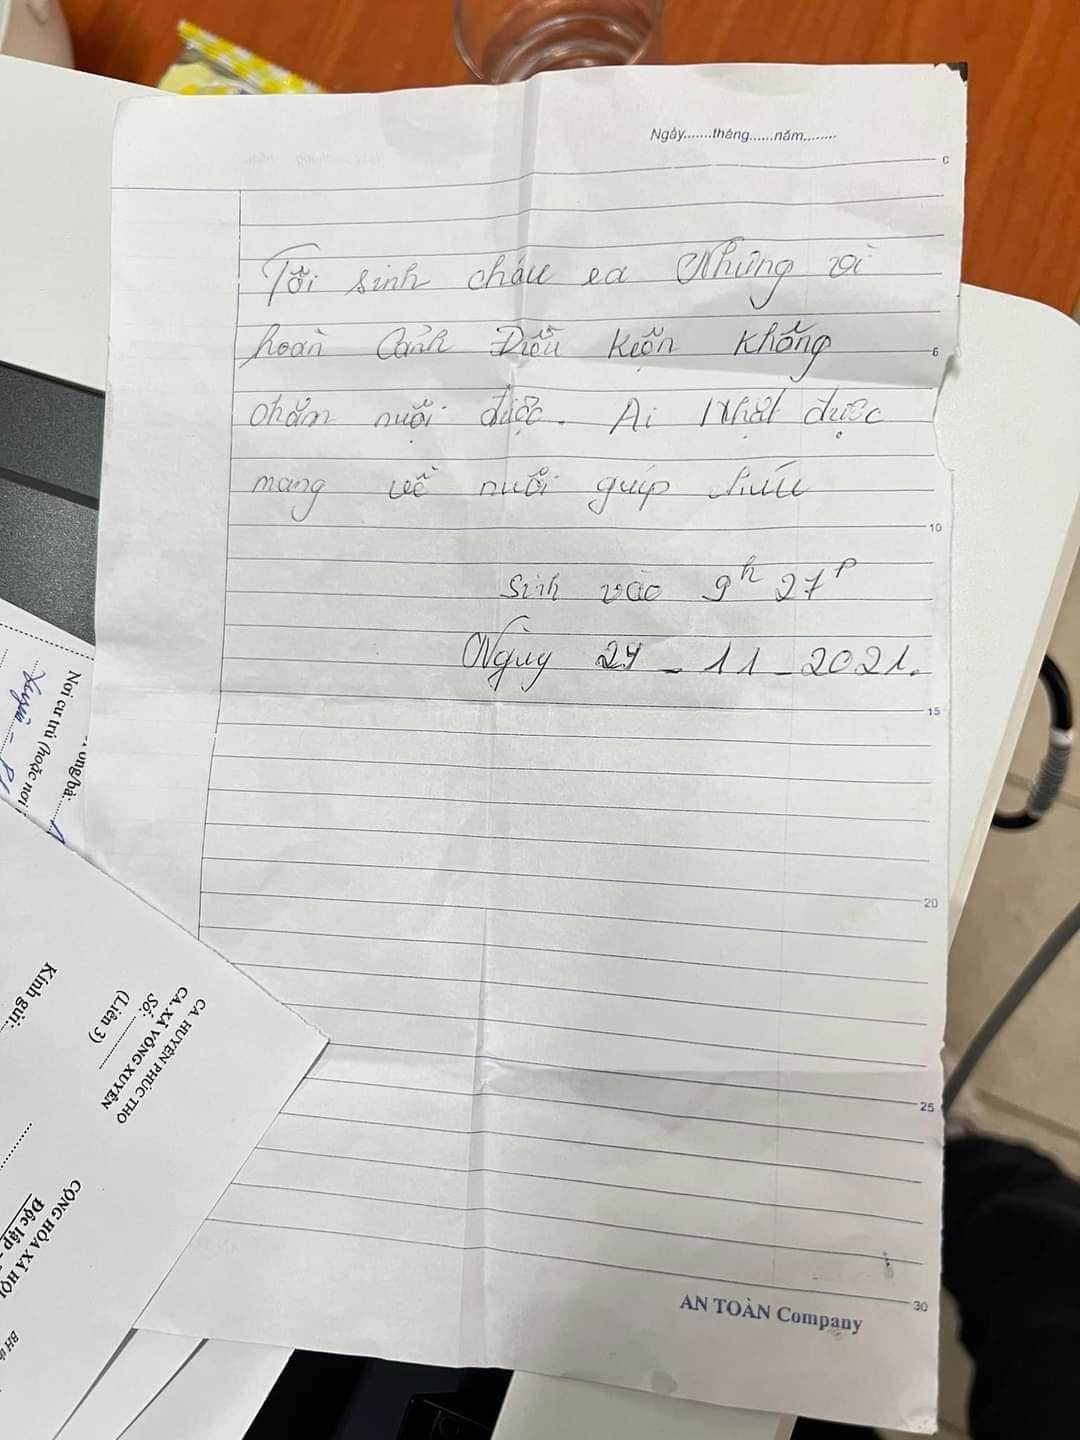 Ngày.......tháng......năm........
0
Tôi sinh cháu ra Nhưng vì
hoàn Cảnh Điều kiện không
6
chăm nuôi được. Ai Nhặt được
mang về nuôi giúp cháu
10
Sinh vào 9h 27p
Ngày 24 - 11 - 2021.
15
20
25
30
AN TOÀN Company
Nơi cư trú (hoặc nơi
ông/bà:
Kính gửi:
CA. HUYỆN PHÚC THỌ
CA. XÃ VÕNG XUYÊN
Số:
(Liên 3)
CỘNG HÒA XÃ HỘI
Độc lập -